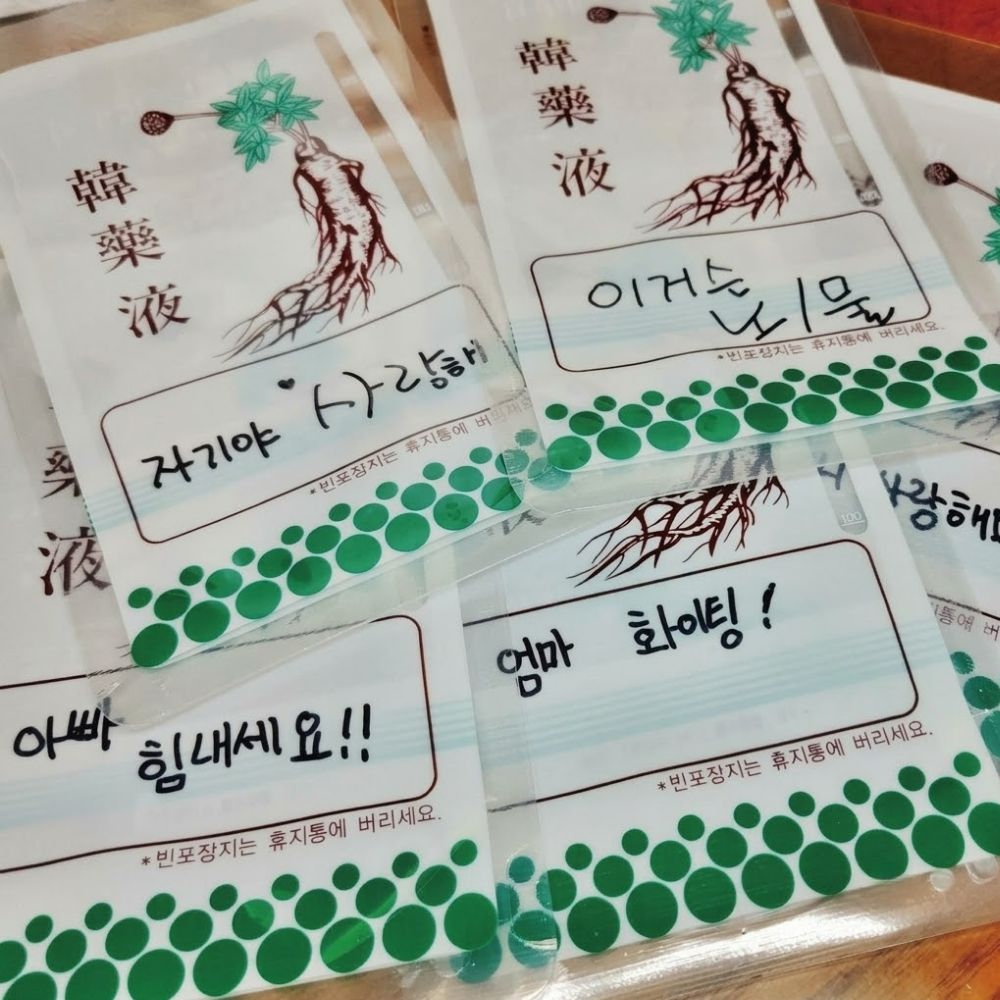 韓藥液
자기야 사랑해
*빈포장지는 휴지통에 버
韓藥液
이거슨
*빈포장지는 휴지통에 버리세요.
藥液
아빠 힘내세요!!
*빈포장지는 휴지통에 버리세요.
100
엄마 화이팅!
*빈포장지는 휴지통에 버리세요.
사랑해요